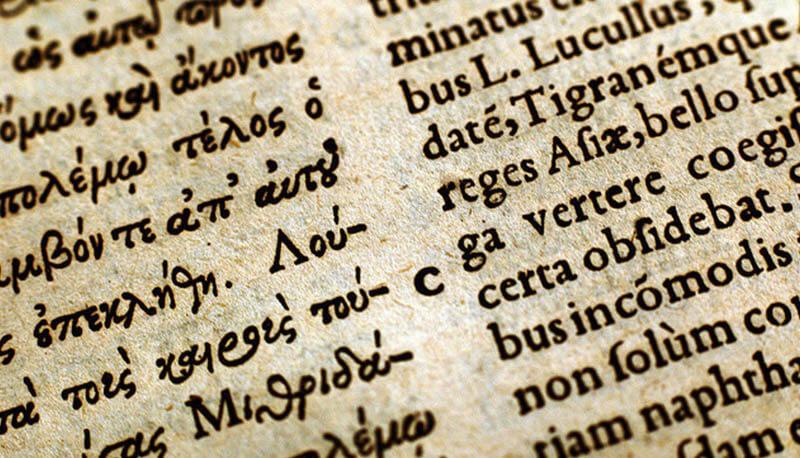 ὅμως καὶ ἄκοντος
πολέμῳ τέλος ὁ
τε ἀπ' αὐτοῦ
ἐπεκλήθη. Λού-
τοὺς καιροὺς τού-
Μιθριδά-
minatus
bus L. Lucullus,
daté, Tigranémque
reges Aſiæ, bello ſup
ga vertere coegiſ
c certa obſidebat.
bus incõmodis
non ſolùm con
tiam naphtha